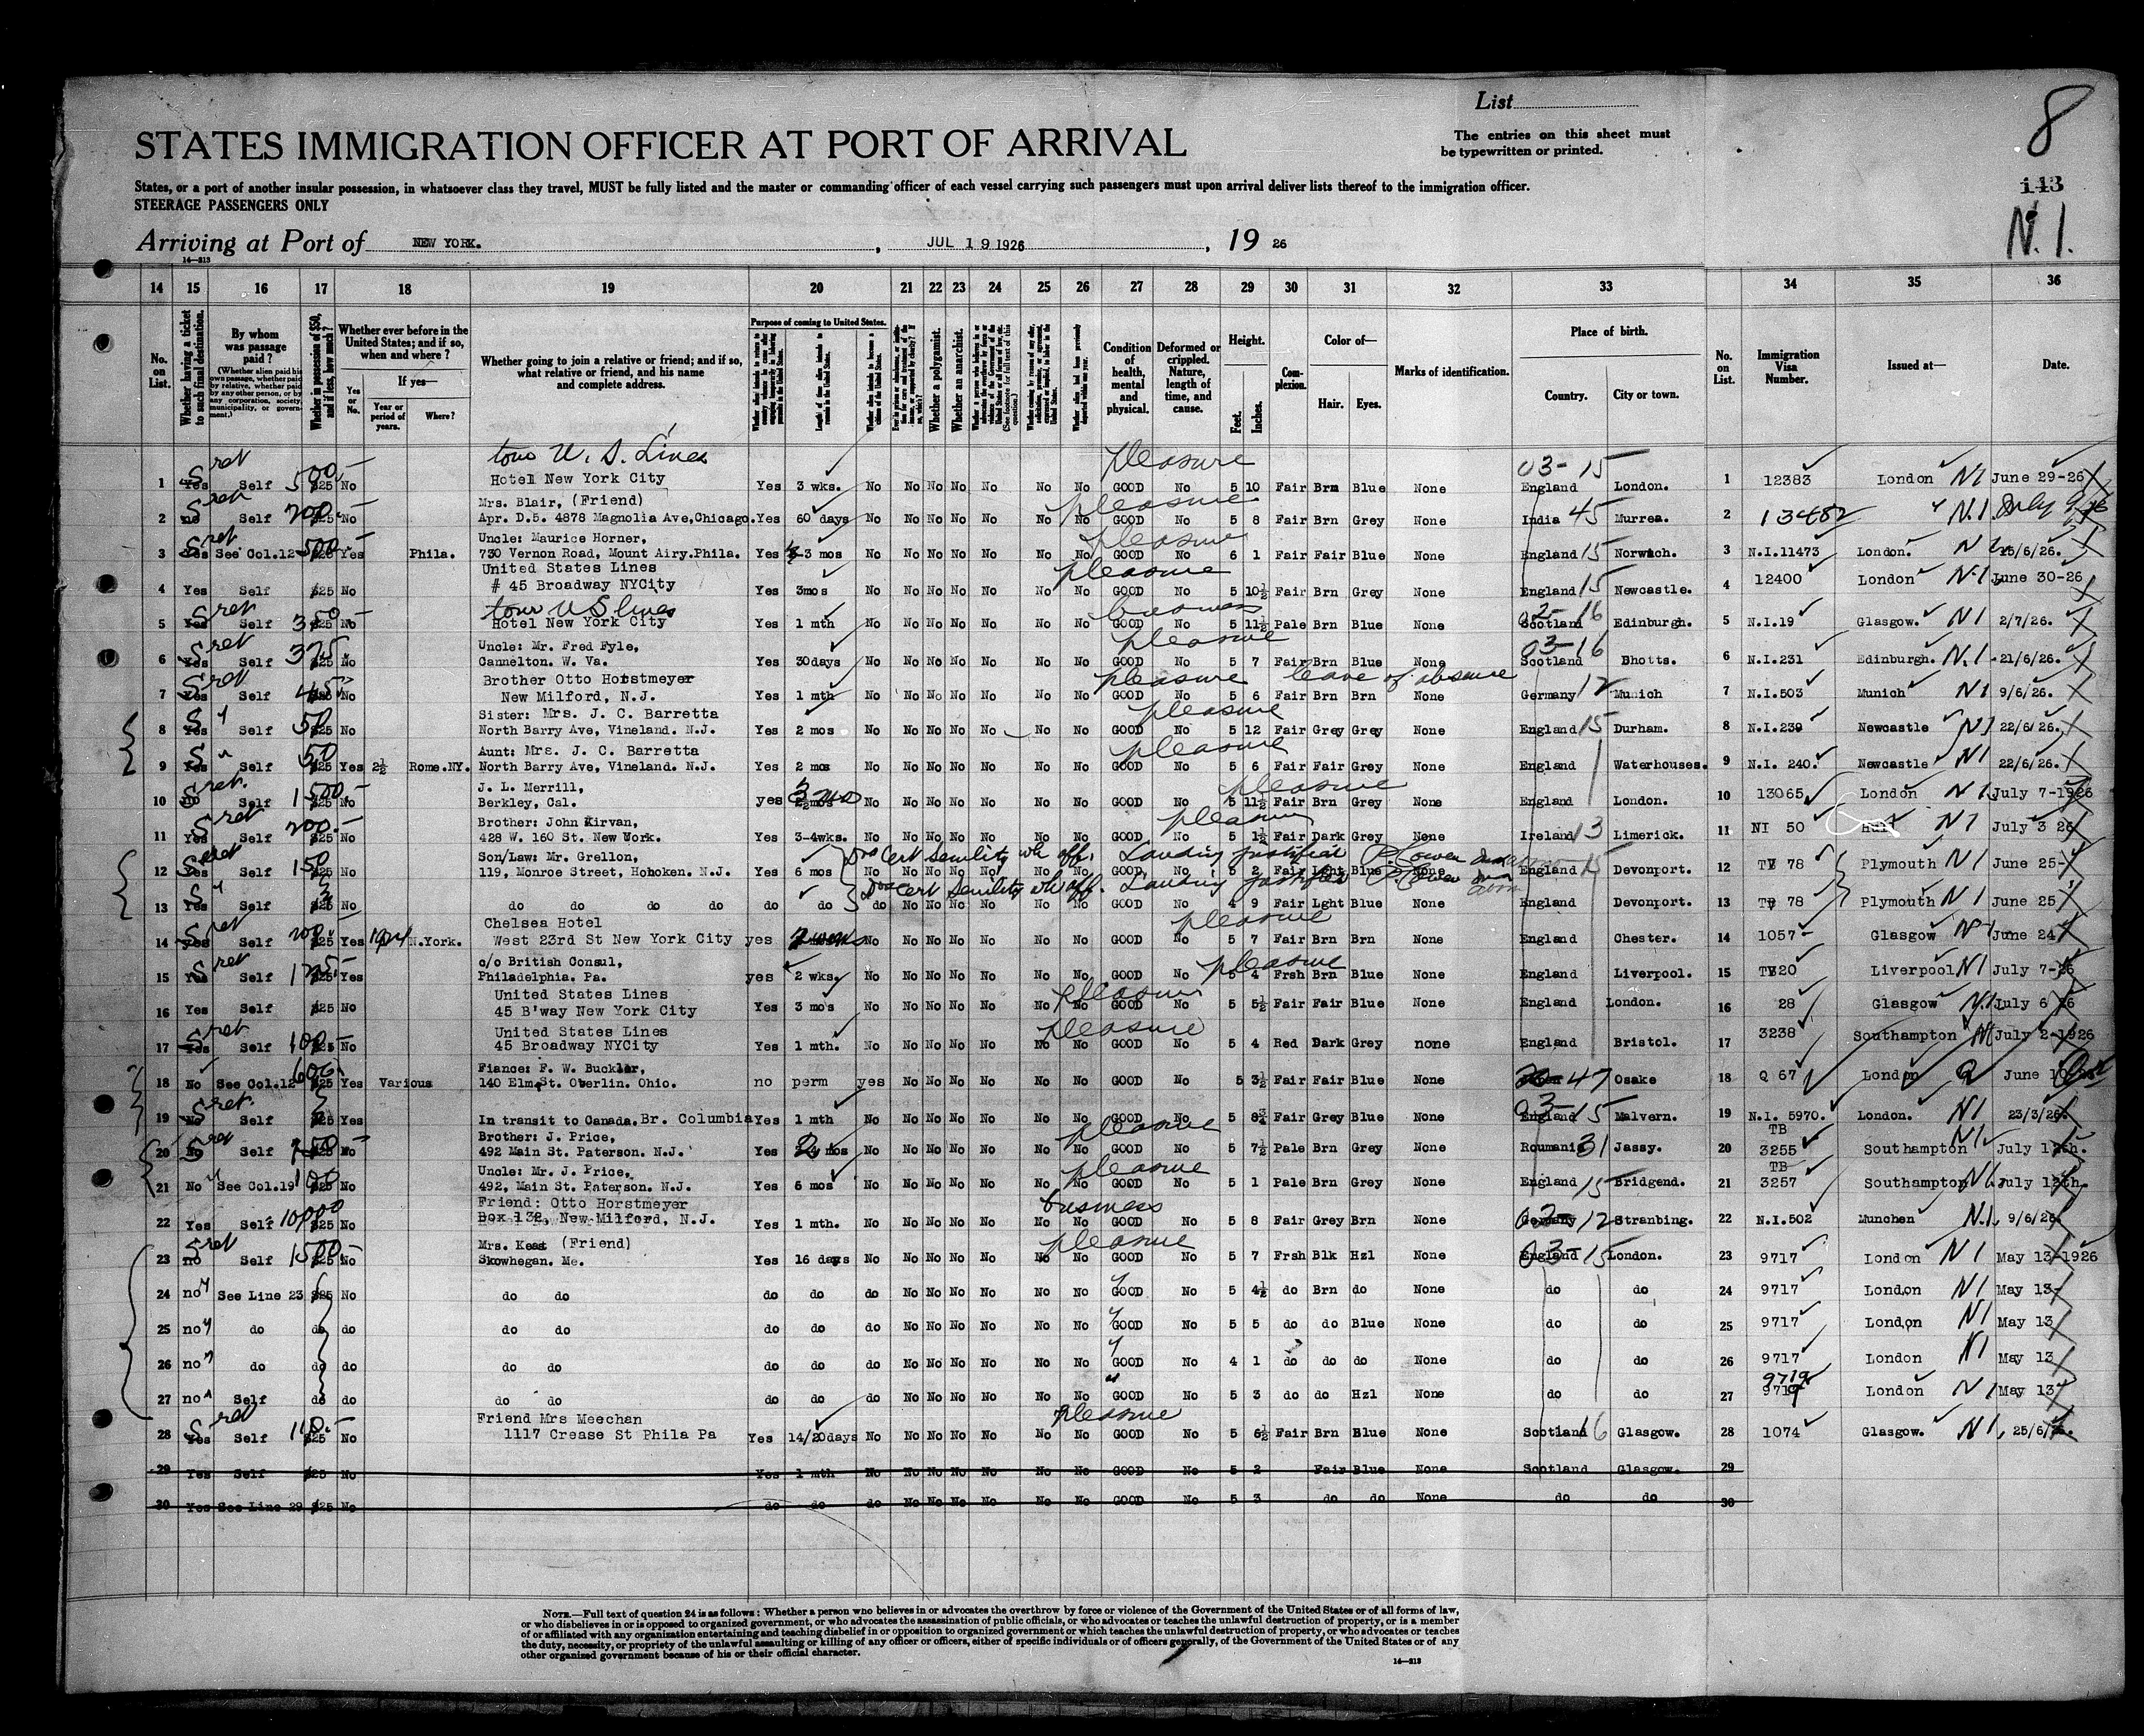 List
8
STATES IMMIGRATION OFFICER AT PORT OF ARRIVAL
The entries on this sheet must
be typewritten or printed.
States, or a port of another insular possession, in whatsoever class they travel, MUST be fully listed and the master or commanding officer of each vessel carrying such passengers must upon arrival deliver lists thereof to the immigration officer.
STEERAGE PASSENGERS ONLY
143
N.1.
Arriving at Port of NEW YORK. , JUL 19 1926 , 19 26
14—213
14 15 16 17 18 19 20 21 22 23 24 25 26 27 28 29 30 31 32 33 34 35 36
No. on List.
Whether having a ticket to such final destination.
By whom was passage paid?
(Whether alien paid his own passage, whether paid by relative, whether paid by any other person, or by any corporation, society, municipality, or government.)
Whether in possession of $50, and if less, how much?
Whether ever before in the United States; and if so, when and where?
Yes or No.
If yes—
Year or period of years.
Where?
Whether going to join a relative or friend; and if so, what relative or friend, and his name and complete address.
Purpose of coming to United States.
Whether a polygamist.
Whether an anarchist.
Condition of health, mental and physical.
Deformed or crippled. Nature, length of time, and cause.
Height.
Feet.
Inches.
Complexion.
Color of—
Hair.
Eyes.
Marks of identification.
Place of birth.
Country.
City or town.
No. on List.
Immigration Visa Number.
Issued at—
Date.
tour U. S. Lines pleasure 03-15
1 Yes Self 500 $25 No Hotel New York City Yes 3 wks. No No No No No No No GOOD No 5 10 Fair Brn Blue None England London. 1 12383 London N1 June 29-26
Mrs. Blair, (Friend) pleasure
2 no Self 200 $25 No Apr. D.5. 4878 Magnolia Ave, Chicago. Yes 60 days No No No No No No No GOOD No 5 8 Fair Brn Grey None India 45 Murrea. 2 13482 N.1. July
Uncle: Maurice Horner, pleasure
3 Yes See Col.12 500 $25 Yes Phila. 730 Vernon Road, Mount Airy.Phila. Yes 3 mos No No No No No No No GOOD No 6 1 Fair Fair Blue None England 15 Norwich. 3 N.I.11473 London. 15/6/26.
United States Lines pleasure
4 Yes Self $25 No # 45 Broadway NYCity Yes 3mos No No No No No No No GOOD No 5 10½ Fair Brn Grey None England 15 Newcastle. 4 12400 London N1 June 30-26
tour US lines business 02-16
5 Yes Self 350 $25 No Hotel New York City Yes 1 mth No No No No No No No GOOD No 5 11½ Pale Brn Blue None Scotland Edinburgh. 5 N.I.19 Glasgow. N1 2/7/26.
Uncle: Mr. Fred Fyle, pleasure 03-16
6 Yes Self 375 $25 No Cannelton. W. Va. Yes 30days No No No No No No No GOOD No 5 7 Fair Brn Blue None Scotland Bhotts. 6 N.I.231 Edinburgh. N.1. 21/6/26.
Brother Otto Horstmeyer pleasure leave of absence
7 Yes Self $25 No New Milford, N.J. Yes 1 mth No No No No No No No GOOD No 5 6 Fair Brn Brn None Germany 12 Munich 7 N.I.503 Munich N1 9/6/26.
Sister: Mrs. J. C. Barretta pleasure
8 Yes Self 50 $25 No North Barry Ave, Vineland. N.J. Yes 2 mos No No No No No No No GOOD No 5 12 Fair Grey Grey None England 15 Durham. 8 N.I.239 Newcastle N1 22/6/26.
Aunt: Mrs. J. C. Barretta pleasure
9 Yes Self 50 $25 Yes 2½ Rome.NY. North Barry Ave, Vineland. N.J. Yes 2 mos No No No No No No No GOOD No 5 6 Fair Fair Grey None England Waterhouses. 9 N.I. 240. Newcastle N1 22/6/26.
J. L. Merrill, pleasure
10 no Self 1500 $25 No Berkley, Cal. yes 3 mo No No No No No No No GOOD No 5 11½ Fair Brn Grey None England London. 10 13065 London N1 July 7-1926
Brother: John Kirvan, pleasure
11 Yes Self 200 $25 No 428 W. 160 St. New York. Yes 3-4wks. No No No No No No No GOOD No 5 1½ Fair Dark Grey None Ireland 13 Limerick. 11 NI 50 Hull N1 July 3 26
Son/Law: Mr. Grellon, Cert Senility Landing justified
12 Yes Self 150 $25 No 119, Monroe Street, Hoboken. N.J. Yes 6 mos No No No No No No No GOOD No 5 2 Fair Lght Blue None England 15 Devonport. 12 78 Plymouth N1 June 25
Cert Senility Landing justified
13 Yes Self do do do do do do do No No No No No No GOOD No 4 9 Fair Lght Blue None England Devonport. 13 78 Plymouth N1 June 25
Chelsea Hotel pleasure
14 yes Self 200 $25 Yes 1924 N.York. West 23rd St New York City yes No No No No No No No GOOD No 5 7 Fair Brn Brn None England Chester. 14 1057 Glasgow June 24
c/o British Consul, pleasure
15 Yes Self $25 Yes Philadelphia. Pa. yes 2 wks. No No No No No No No GOOD No 5 4 Frsh Brn Blue None England Liverpool. 15 20 Liverpool N1 July 7-26
United States Lines pleasure
16 Yes Self $25 No 45 B'way New York City Yes 3 mos No No No No No No No GOOD No 5 5½ Fair Fair Blue None England London. 16 28 Glasgow N1 July 6 26
United States Lines pleasure
17 Yes Self 100 $25 No 45 Broadway NYCity Yes 1 mth. No No No No No No No GOOD No 5 4 Red Dark Grey none England Bristol. 17 3238 Southampton July 2-1926
Fiance: F. W. Buckler,
18 No See Col.12 600 $25 Yes Various 140 Elm St. Oberlin. Ohio. no perm yes No No No No No No GOOD No 5 3½ Fair Fair Blue None 47 Osake 18 Q 67 London Q June 10
03-15
19 No Self $25 Yes In transit to Canada. Br. Columbia Yes 1 mth No No No No No No No GOOD No 5 8¾ Fair Grey Blue None England Malvern. 19 N.I. 5970. London. N1 23/3/26
Brother: J. Price, pleasure TB
20 No Self $25 No 492 Main St. Paterson. N.J. Yes mos No No No No No No No GOOD No 5 7½ Pale Brn Grey None Roumania 31 Jassy. 20 3255 Southampton N1 July
Uncle: Mr. J. Price, pleasure TB
21 No See Col.19 100 $25 No 492, Main St. Paterson. N.J. Yes 6 mos No No No No No No No GOOD No 5 1 Pale Brn Grey None England 15 Bridgend. 21 3257 Southampton N1 July
Friend: Otto Horstmeyer business
22 Yes Self 10000 $25 No Box 132, New Milford, N.J. Yes 1 mth. No No No No No No No GOOD No 5 8 Fair Grey Brn None Germany 12 Stranbing. 22 N.I.502 Munchen N.1. 9/6/26
Mrs. Keas (Friend) pleasure 03-15
23 no Self 1500 $25 No Skowhegan. Me. Yes 16 days No No No No No No No GOOD No 5 7 Frsh Blk Hzl None England London. 23 9717 London N1 May 13-1926
24 no See Line 23 $25 No do do do do do No No No No No No GOOD No 5 4½ do Brn do None do do 24 9717 London N1 May 13
25 no do do do do do do do do No No No No No No GOOD No 5 5 do do Blue None do do 25 9717 London N1 May 13
26 no do do do do do do do do No No No No No No GOOD No 4 1 do do do None do do 26 9717 London N1 May 13
27 no Self do do do do do do do No No No No No No GOOD No 5 3 do do Hzl None do do 27 9719 London N1 May 13
Friend Mrs Meechan pleasure
28 Yes Self 110 $25 No 1117 Crease St Phila Pa Yes 14/20days No No No No No No No GOOD No 5 6½ Fair Brn Blue None Scotland 16 Glasgow. 28 1074 Glasgow. N1. 25/6/
29 Yes Self $25 No Yes 1 mth No No No No No No No GOOD No 5 2 Fair Blue None Scotland Glasgow. 29
30 Yes See Line 29 $25 No do do do No No No No No No GOOD No 5 3 do do None do do 30
NOTE.—Full text of question 24 is as follows: Whether a person who believes in or advocates the overthrow by force or violence of the Government of the United States or of all forms of law,
or who disbelieves in or is opposed to organized government, or who advocates the assassination of public officials, or who advocates or teaches the unlawful destruction of property, or is a member
of or affiliated with any organization entertaining and teaching disbelief in or opposition to organized government or which teaches the unlawful destruction of property, or who advocates or teaches
the duty, necessity, or propriety of the unlawful assaulting or killing of any officer or officers, either of specific individuals or of officers generally, of the Government of the United States or of any
other organized government because of his or their official character.
14—213